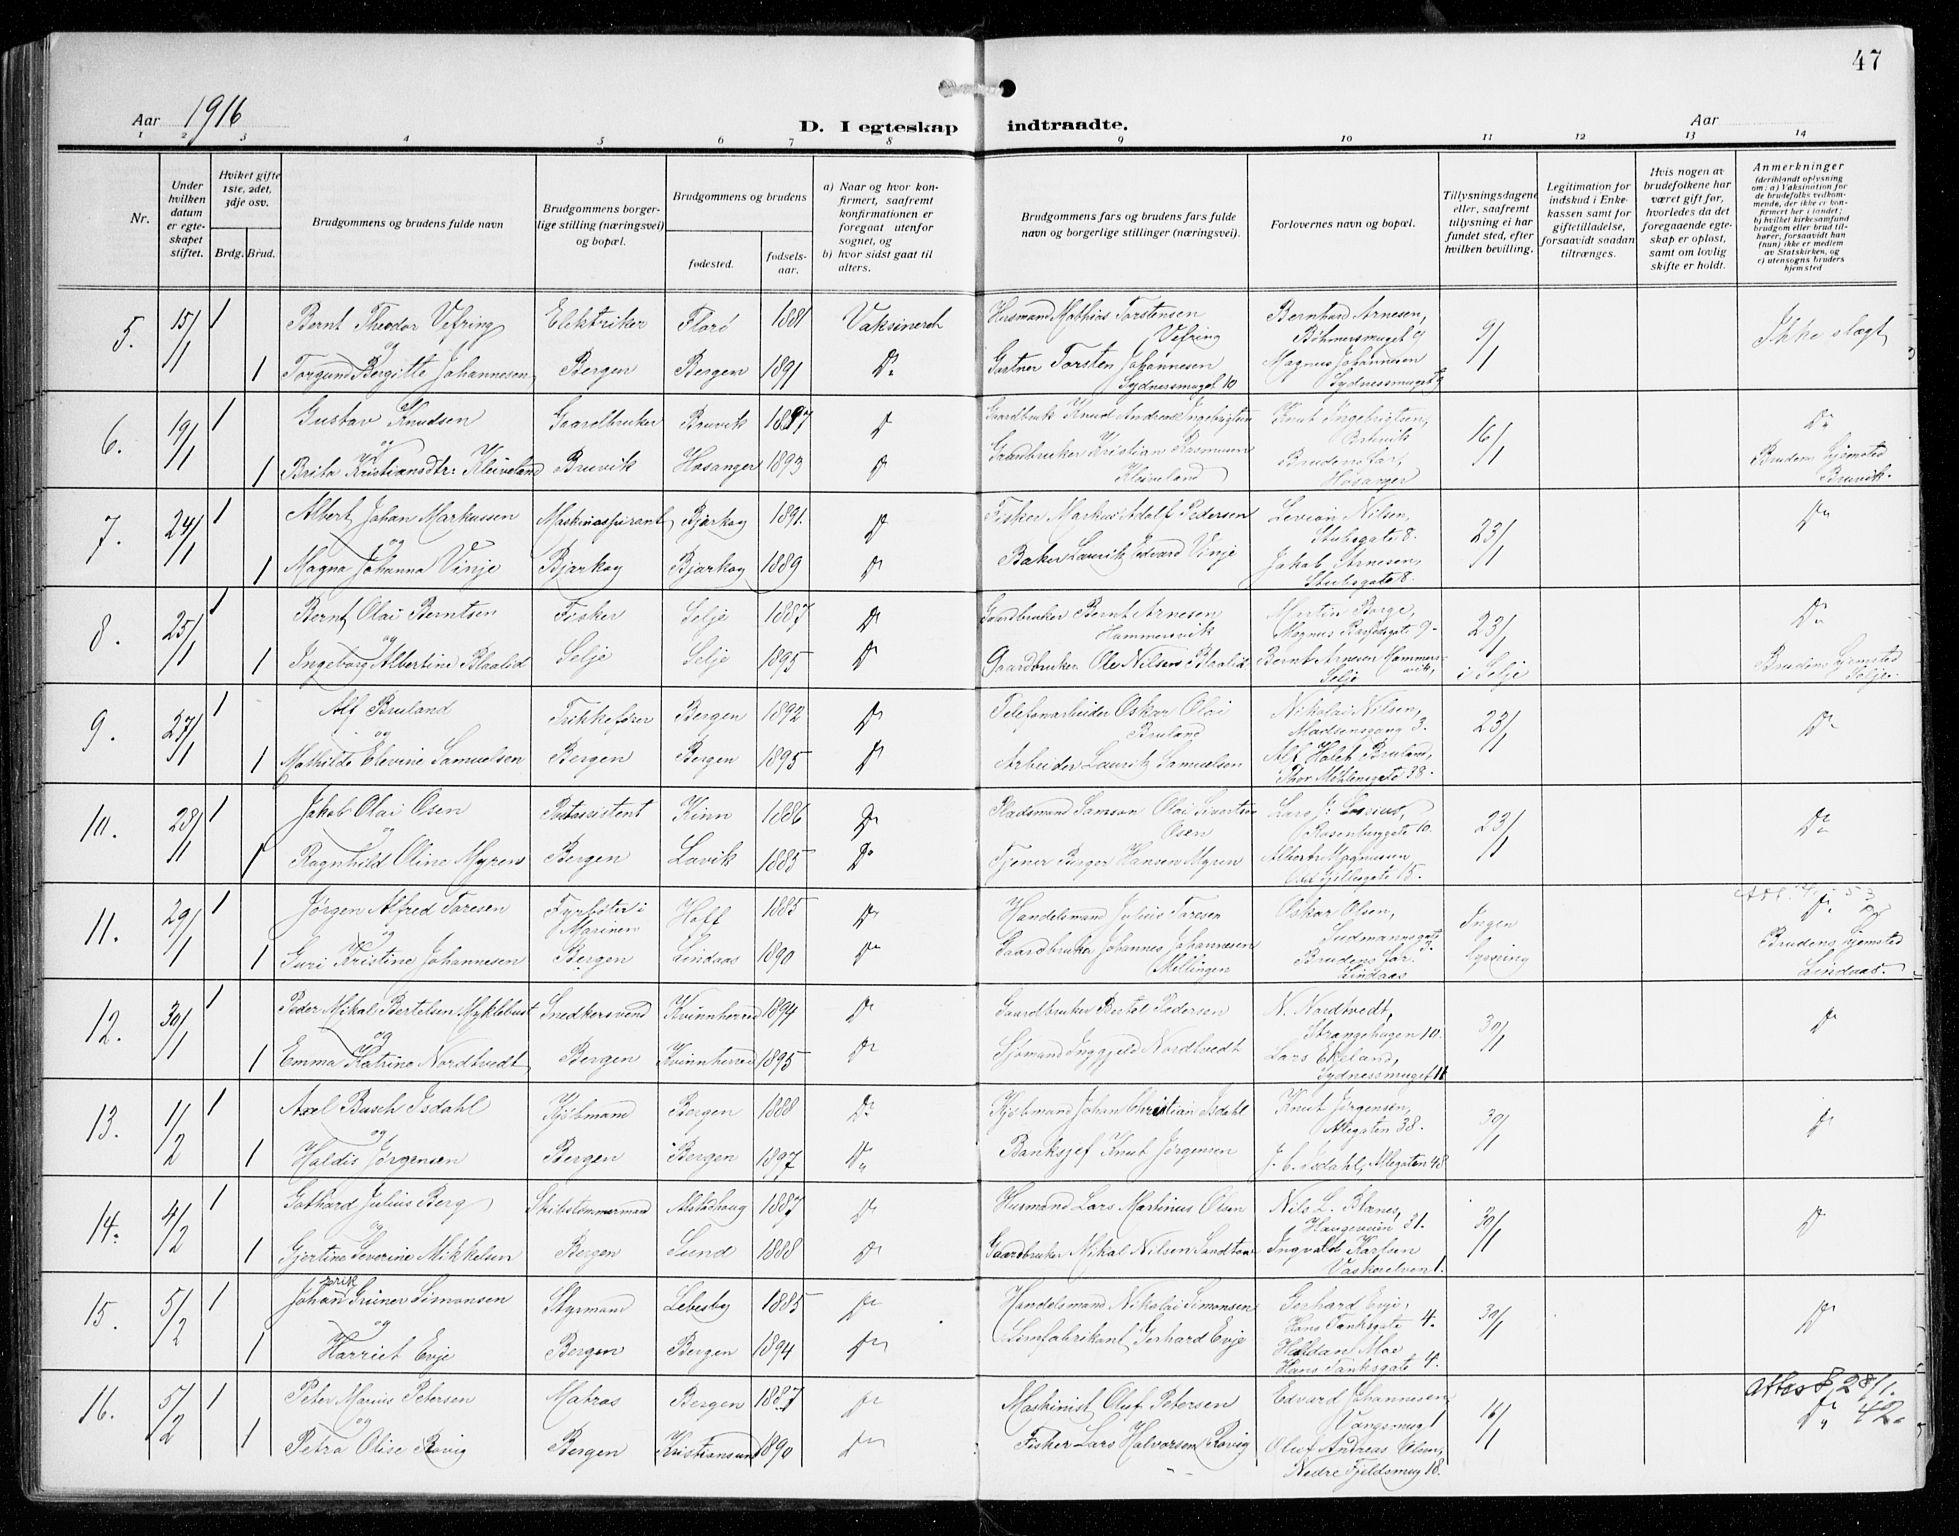 47
Aar 1916
D. I egteskap indtraadte.
Aar
1 2 3 4 5 6 7 8 9 10 11 12 13 14
Nr.
Under hvilken datum er egteskapet stiftet.
Hviket gifte 1ste, 2det, 3dje osv.
Brdg. Brud.
Brudgommens og brudens fulde navn
Brudgommens borgerlige stilling (næringsvei) og bopæl.
Brudgommens og brudens
fødested.
fødselsaar.
a) Naar og hvor konfirmert, saafremt konfirmationen er foregaat utenfor sognet, og
b) hvor sidst gaat til alters.
Brudgommens fars og brudens fars fulde navn og borgerlige stillinger (næringsvei).
Forlovernes navn og bopæl.
Tillysningsdagene eller, saafremt tillysning ei har fundet sted, efter hvilken bevilling.
Legitimation for indskud i Enkekassen samt for giftetilladelse, forsaavidt saadan tiltrænges.
Hvis nogen av brudefolkene har været gift før, hvorledes da det foregaaende egteskap er opløst, samt om lovlig skifte er holdt.
Anmerkninger
(deriblandt oplysning om: a) Vaksination for de brudefolks vedkommende, der ikke er konfirmert her i landet; b) hvilket kirkesamfund brudgom eller brud tilhører, forsaavidt han (hun) ikke er medlem av Statskirken, og c) utensogns bruders hjemsted
5. 15/1 1 Bernt Theodor Vefring Elektriker Florø 1881 Vaksinered Husmand Mathias Torstensen Vefring Bernhard Arnesen, Bøhmersmuget 9 9/1 Ikke slegt
og
1 Torgund Bergitte Johannesen Bergen Bergen 1891 Do Gartner Torsten Johannesen Sydnessmuget 10 Magnus Johannesen Sydnessmuget
6. 19/1 1 Gustav Knudsen Gaardbruker Bruvik 1887 Do Gaardbruk Knud Andreas Ingebrigtsen Knut Ingebrigtsen, Bruvik 16/1 Do
og
1 Brita Kristiansdtr. Kleiveland Bruvik Hosanger 1893 Do Gaardbruker Kristian Rasmussen Kleiveland Brudens far, Hosanger Brudens hjemsted Bruvik.
7. 24/1 1 Albert Johan Markussen Maskinaspirant Bjarkøy 1891. Do Fisker Markus Adolf Pedersen Levion Nilsen, Stubsgate 8. 23/1 Do
og
1 Magna Johanna Vinje Bjarkøy Bjarkøy 1889 Do Baker Laurits Edvard Vinje Jakob Arnesen, Stubsgate 8.
8. 25/1 1 Bernt Olai Berntsen Fisker Selje 1887 Do Gaardbruker Bernt Arnesen Hammersvik Martin Borge, Magnus Barfodsgate 9 23/1 Do
og
1 Ingeborg Albertine Blaalid Selje Selje 1895 Do Gaardbruker Ole Nilsen Blaalid Bernt Arnesen Hammersvik, Selje i Selje Brudens hjemsted Selje.
9. 27/1 1 Alf Bruland Trikkefører Bergen 1892 Do Telefonarbeider Oskar Olai Bruland Nikolai Nilsen, Madsensgang 3. 23/1 Do
og
1 Mathilde Elevine Samuelsen Bergen Bergen 1895 Do Arbeider Laurits Samuelsen Alf Holck Bruland, Thor Møhlensgate 38.
10. 28/1 1 Jakob Olai Osen Kinn 1886 Do Pladsmand Samson Olai Sivertsen Osen Rosenberggate 10. 23/1 Do
og
1 Ragnhild Oline Myren Bergen Lavik 1885 Do Tjener Berge Hansen Myren Albert Magnussen 15.
11. 29/1 1 Jørgen Alfred Toresen Fyrbøter i Marinen Hoff 1885 Do Handelsmand Julius Toresen Oskar Olsen, Ingen Do
og
1 Guri Kristine Johannesen Bergen Lindaas 1890 Do Gaardbruker Johannes Johannesen Mellingen Brudens far. Lindaas lysning Brudens hjemsted Lindaas.
12. 30/1 1 Peder Mikal Bertelsen Myklebust Snedkersvend Kvinnherred 1894 Do Gaardbruker Bertel Pedersen N. Nordtvedt, Strangehagen 10. 30/1 Do
og
1 Emma Katrine Nordtvedt Bergen Kvinnherred 1895 Do Sjømand Inggjeld Nordtvedt Lars Ekeland, Sydnessmuget 11
13. 1/2 1 Axel Busch Isdahl Kjøbmand Bergen 1888 Do Kjøbmand Johan Christian Isdahl Knut Jørgensen, Allegaten 38. 30/1 Do
og
1 Haldis Jørgensen Bergen Bergen 1897 Do Banksjef Knut Jørgensen J. C. Isdahl, Allegaten 48
14. 4/2 1 Gothard Julius Berg Skibstømmermand Alstadhaug 1887 Do Husmand Lars Martinus Olsen Nils L. Blænes, Haugeveien 31. 30/1 Do
og
1 Gjertine Severine Mikkelsen Bergen Lund 1888 Do Gaardbruker Mikal Nilsen Sandtau Ingvald Karlsen Vaskerelven 1.
15. 5/2 1 Johan Grüner Simonsen Styrmand Lebesby 1885 Do Handelsmand Nikolai Simonsen Gerhard Evje, Hans Tanksgate 4. 30/1 Do
og
1 Harriet Evje Bergen Bergen 1894 Do Lemfabrikant Gerhard Evje Haldan Moe Hans Tanksgate 4.
16. 5/2 1 Peter Marius Petersen Matros Bergen 1887 Do Maskinist Oluf Petersen Edvard Johannesen Vangsmug 1 16/1 Attest 28/1. 42. Do
og
1 Petra Olise Rovig Bergen Kristiansund 1890 Do Fisker Lars Halvorsen Rovig Oluf Andreas Olsen, Nedre Fjeldsmug 18.